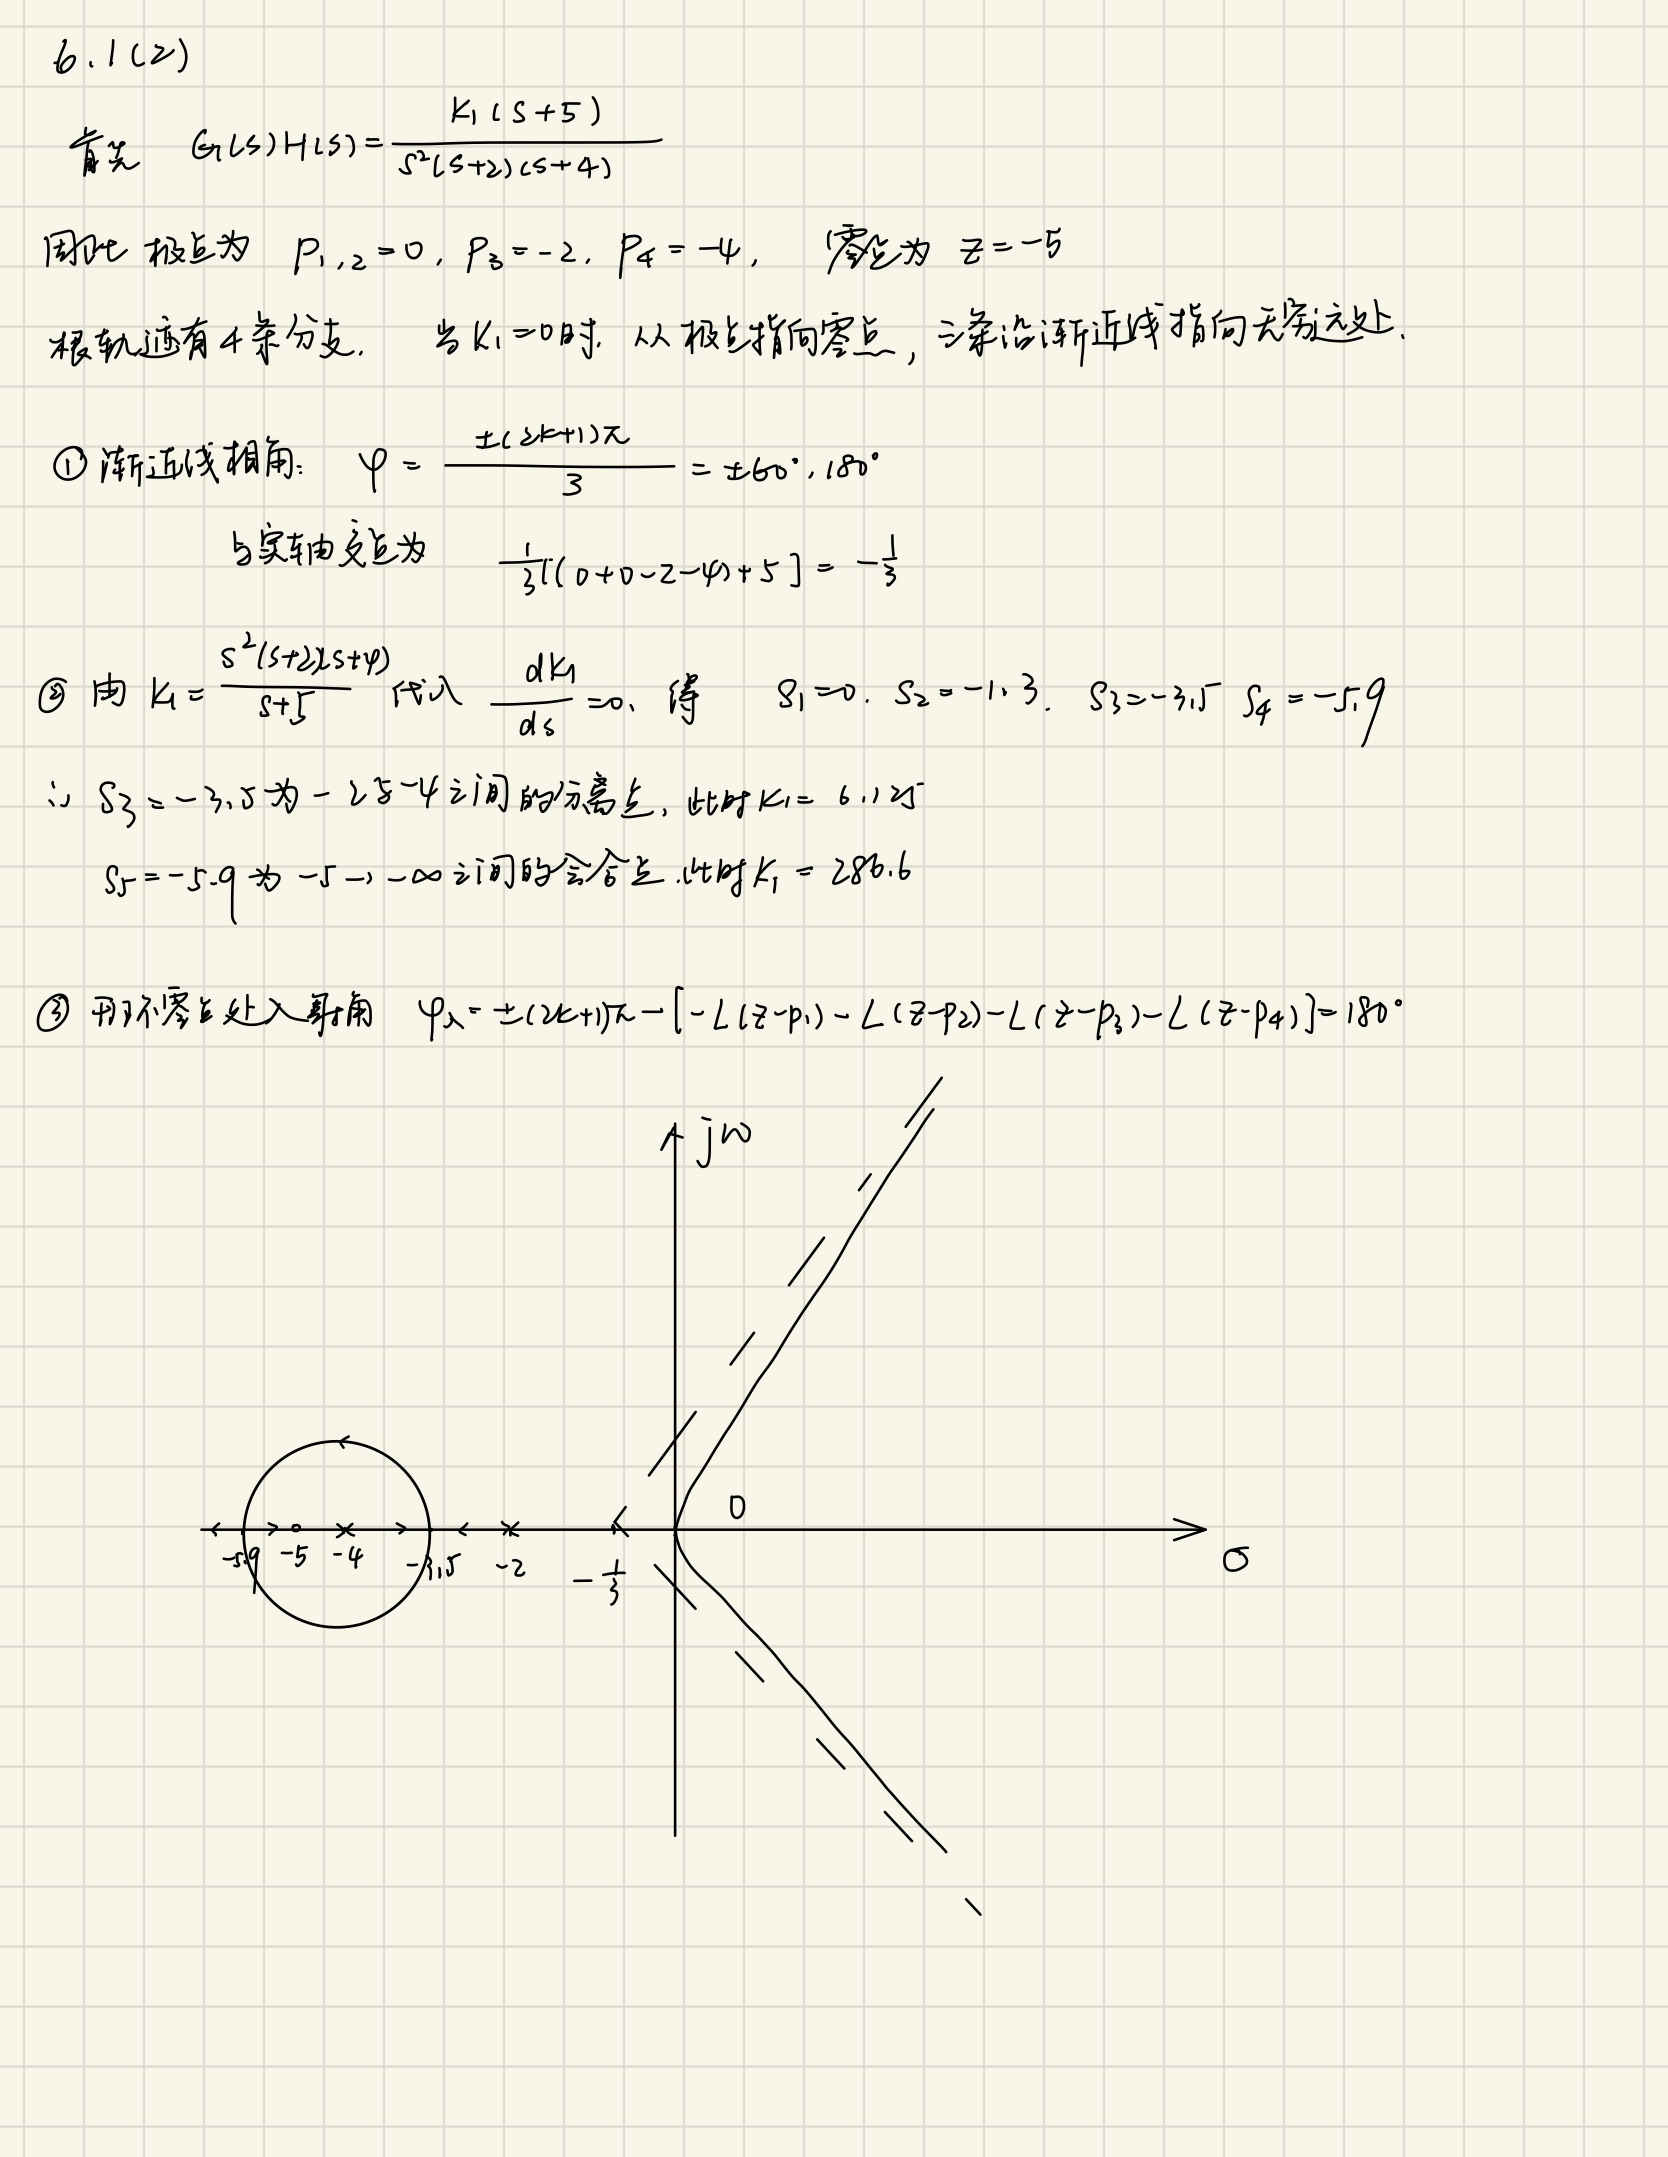 6.1(2)
首先 G(s)H(s)=K₁(s+5)/s²(s+2)(s+4)
因此 极点为 P₁,₂=0, P₃=-2, P₄=-4, 零点为 z=-5
根轨迹有4条分支. 当K₁=0时, 从极点指向零点, 三条沿渐近线指向无穷远处.
① 渐近线相角: φ=±(2k+1)π/3=±60°,180°
与实轴交点为 1/3[(0+0-2-4)+5]=-1/3
② 由 K₁=s²(s+2)(s+4)/s+5 代入 dK₁/ds=0, 得 S₁=0. S₂=-1.3. S₃=-3.5 S₄=-5.9
∴ S₃=-3.5为-2与-4之间的分离点, 此时K₁=6.125
S₅=-5.9为-5→-∞之间的会合点.此时K₁=286.6
③ 开环零点处入射角 φ入=±(2k+1)π-[-∠(z-p₁)-∠(z-p₂)-∠(z-p₃)-∠(z-p₄)]=180°
jω
0
-5.9 -5 -4 -3.5 -2 -1/3 σ